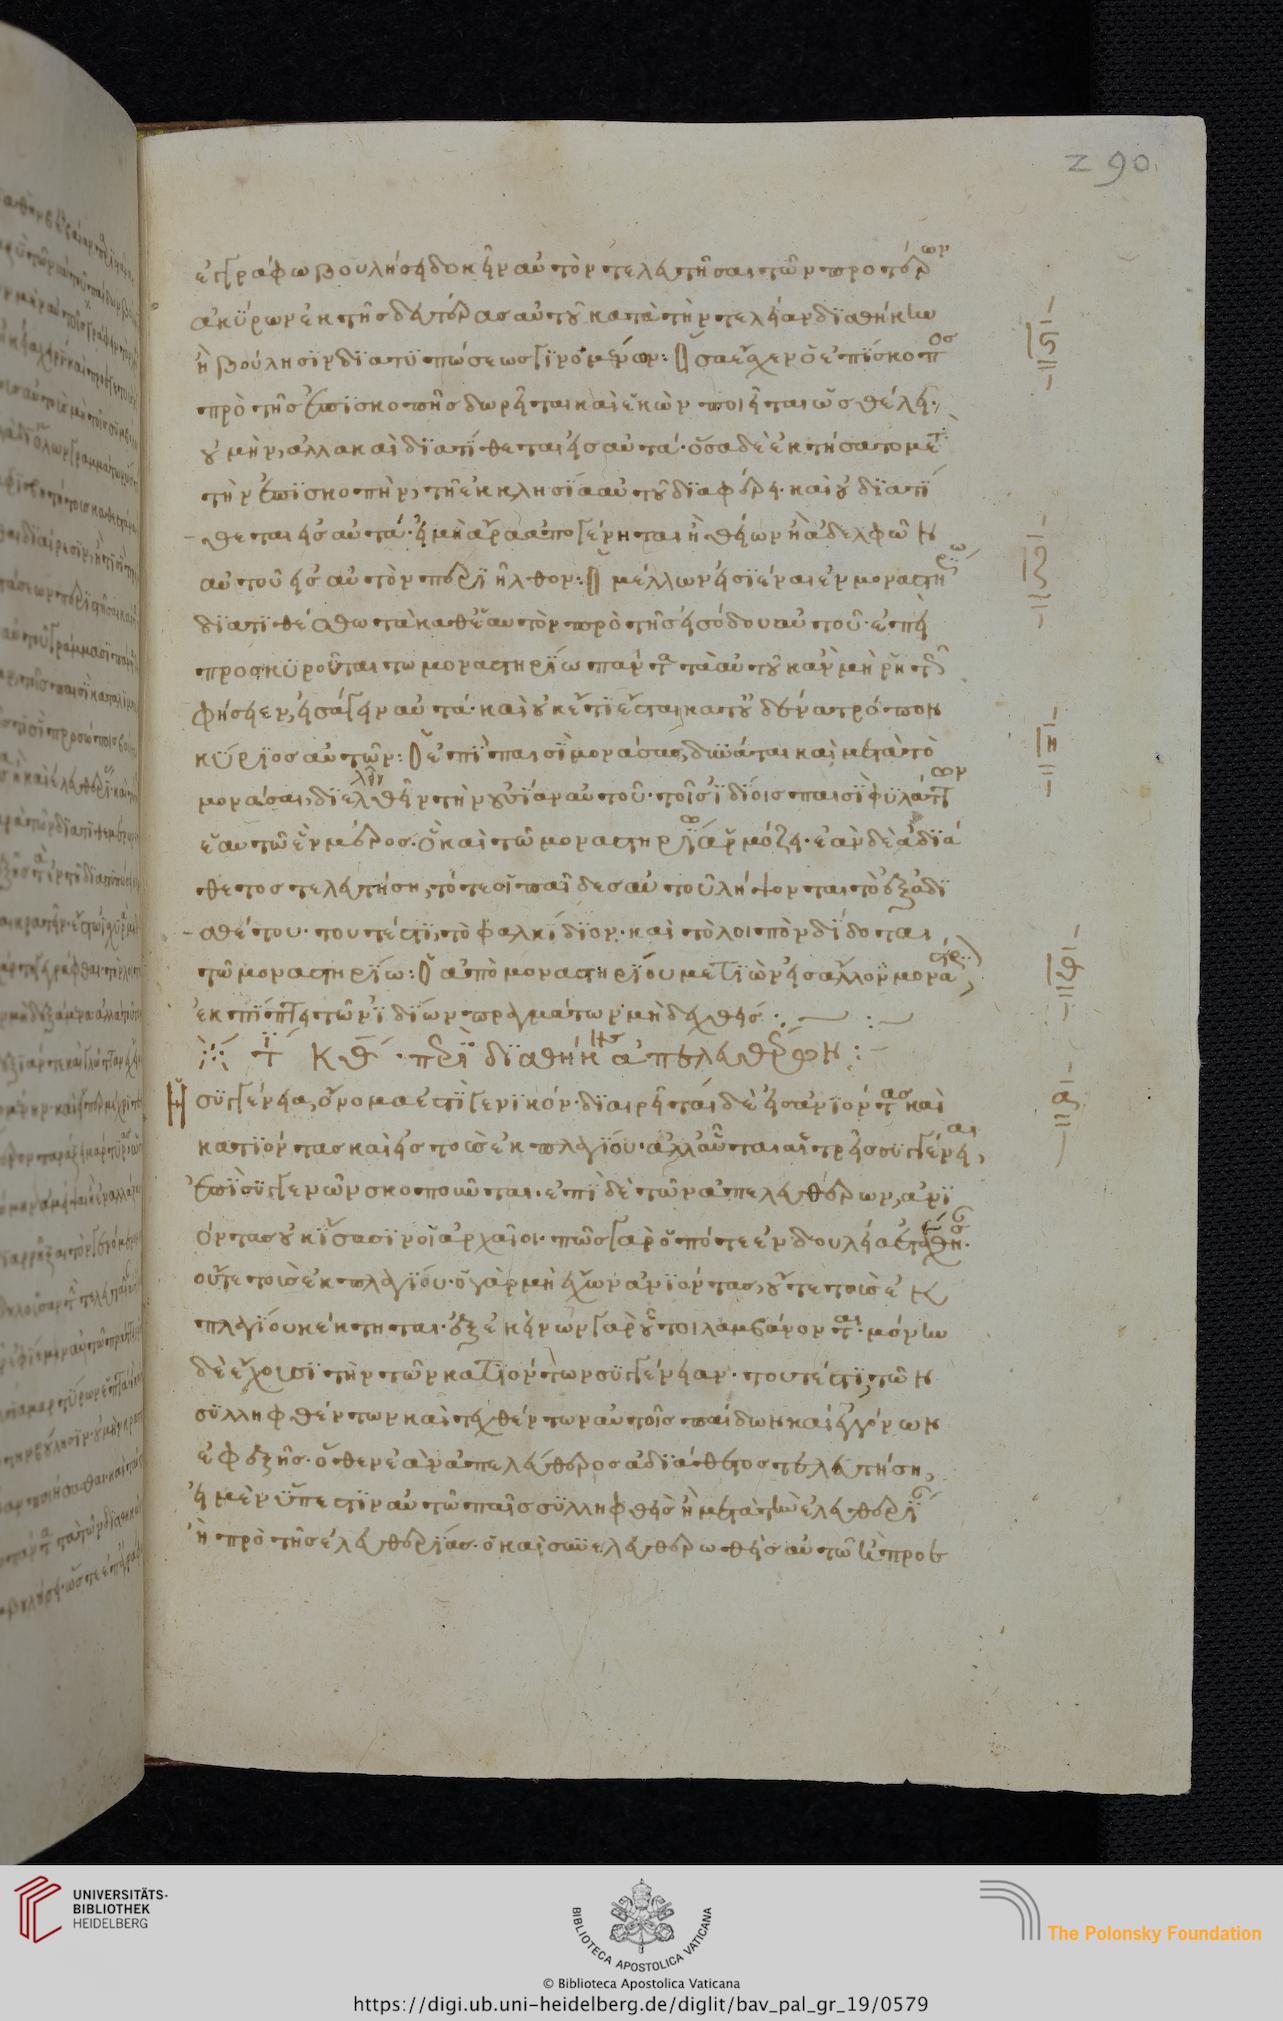 290
ἐγγράφω βουλήσει δοκεῖν αὐτὸν τελευτῆσαι τῶν προτέρων
ἀκύρων ἐκ τῆς δευτέρας αὐτοῦ κατὰ τὴν τελείαν διαθήκην
ἢ βούλησιν διατυπώσεως γινομένων: Ὅσα εἶχεν ὁ ἐπίσκοπος
πρὸ τῆς ἐπισκοπῆς δωρεῖται καὶ ἐκποιεῖται ὡς θέλει·
οὐ μὴν, ἀλλὰ καὶ διατίθεται εἰς αὐτά· ὅσα δὲ ἐκτήσατο μετὰ
τὴν ἐπισκοπὴν, τῇ ἐκκλησίᾳ αὐτοῦ διαφέρει· καὶ οὐ διατί
θεται εἰς αὐτά· εἰ μὴ ἄρα ἀπὸ γένηται ἢ θείων ἢ ἀδελφῶν
αὐτοῦ εἰς αὐτὸν περιῆλθον: Ὁ μέλλων εἰσιέναι ἐν μοναστηρίω
διατιθέσθω τὰ καθ' ἑαυτὸν πρὸ τῆς εἰσόδου αὐτοῦ· ἐπεὶ
προσκυροῦται τῶ μοναστηρίω πάντα τὰ αὐτοῦ κἂν μὴ ῥητῶς
φήσειεν, εἰσάγειν αὐτά· καὶ οὐκέτι ἔσται κατ' οὐδένα τρόπον
κύριος αὐτῶν: Ὁ ἐπὶ παισὶ μονάσας, δύναται καὶ μετὰ τὸ
μονάσαι, διελεῖν τὴν οὐσίαν αὐτοῦ τοῖς ἰδίοις παισὶ φυλάττων
ἑαυτῶ ἓν μέρος· ὃ καὶ τῶ μοναστηρίω ἁρμόζει· ἐὰν δὲ ἀδιά
θετος τελευτήση, τότε οἱ παῖδες αὐτοῦ λήψονται τὸ ἐξ ἀδι
αθέτου· τουτέστι, τὸ φαλκίδιον· καὶ τὸ λοιπὸν δίδοται
τῶ μοναστηρίω: Ὁ ἀπὸ μοναστηρίου μετιὼν εἰς ἄλλον μοναστήρ
ἐκπίπτει τῶν ἰδίων πραγμάτων μὴ δεχθείς :
τί κθ · περὶ διαθήκης ἀπελευθέρων :
Ἡ συγγένεια, ὄνομα ἐστὶ γενικόν· διαιρεῖται δὲ εἰς ἀνιόντας καὶ
κατιόντας καὶ εἰς τοὺς ἐκ πλαγίου· ἀλλ' αὗται αἱ τρεῖς συγγένειαι,
ἐπὶ συγγενῶν σκοποῦνται· ἐπὶ δὲ τῶν ἀπελευθέρων, ἀνι
όντας οὐκ ἴσασιν οἱ ἀρχαῖοι· πῶς γὰρ ὁπότε ἐν δουλεία ἐτέχθη·
οὔτε τοὺς ἐκ πλαγίου· ὁ γὰρ μὴ ἔχων ἀνιόντας, οὔτε τοὺς ἐκ
πλαγίου κέκτηται· ἐξ ἐκείνων γὰρ οὗτοι λαμβάνονται· μόνην
δὲ ἔχουσι τὴν τῶν κατιόντων συγγένειαν· τουτέστι, τῶν
συλληφθέντων καὶ τεχθέντων αὐτοῖς παίδων καὶ ἐγγόνων
ἐφεξῆς· ὅθεν ἐὰν ἀπελεύθερος ἀδιάθετος τελευτήση,
εἰ μὲν ὕπεστιν αὐτῶ παῖς συλληφθεὶς ἢ μετὰ τὴν ἐλευθερίαν
ἢ πρὸ τῆς ἐλευθερίας· ὃ καὶ συνελευθερωθεὶς αὐτῶ
ς
ζ
η
θ
α
UNIVERSITÄTS-
BIBLIOTHEK
HEIDELBERG
BIBLIOTECA APOSTOLICA VATICANA
© Biblioteca Apostolica Vaticana
The Polonsky Foundation
https://digi.ub.uni-heidelberg.de/diglit/bav_pal_gr_19/0579